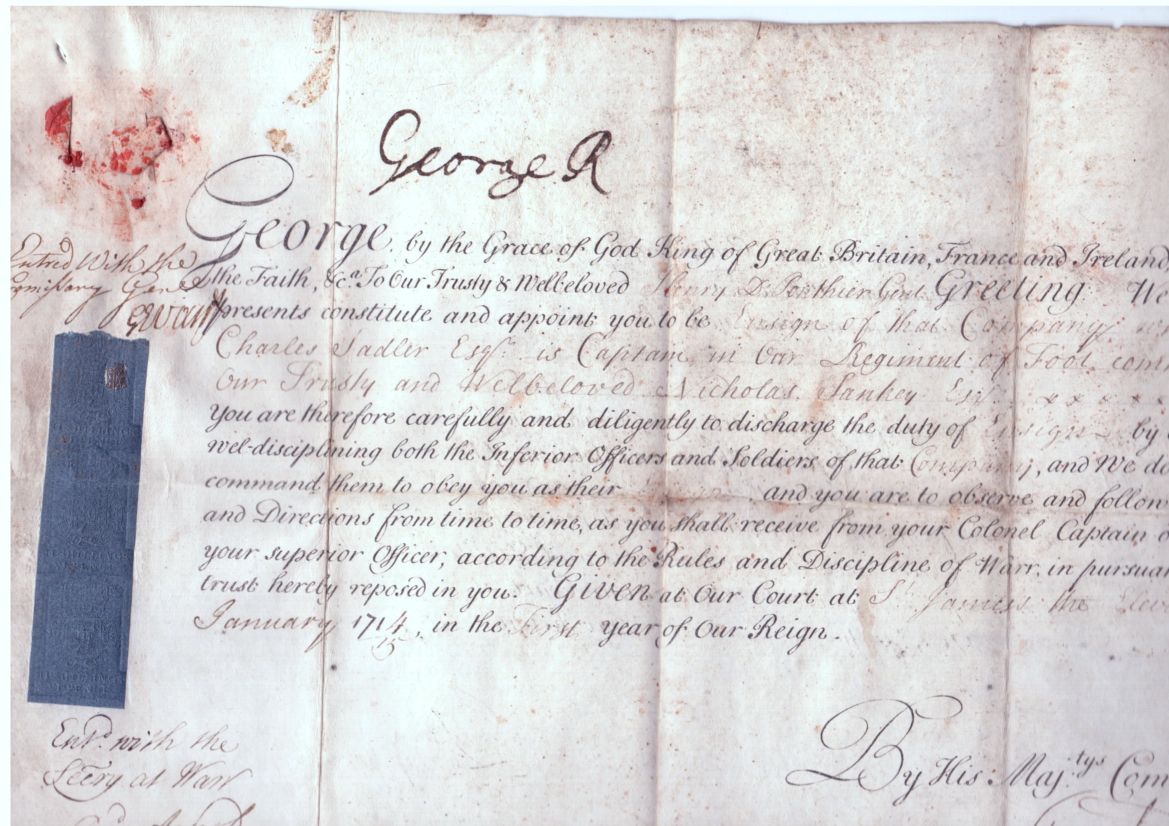 George R
George, by the Grace of God King of Great Britain, France and Ireland
the Faith, &c.a To Our Trusty & Welbeloved Henry D Ponthier Gent. Greeting: We
presents constitute and appoint you to be Ensign of that Company
Charles Sadler Esqr. is Captain in Our Regiment of Foot com
Our Trusty and Welbeloved Nicholas Sankey Esqr. x x x x x
You are therefore carefully and diligently to discharge the duty of Ensign by
wel-disciplining both the Inferior Officers and Soldiers of that Company, and We do
command them to obey you as their and you are to observe and follow
and Directions from time to time, as you shall receive from your Colonel Captain o
your superior Officer, according to the Rules and Discipline of Warr, in pursuan
trust hereby reposed in you. Given at Our Court at St. James's the Elev
January 1714/15, in the First year of Our Reign.
Entred With the
Comissary Genll
By His Maj.tys Com
Entd. with the
Secry at Warr